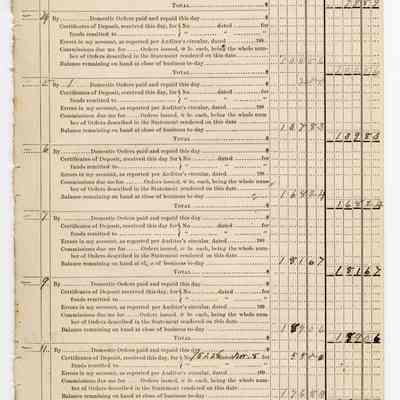 TOTAL $
4 By Domestic Orders paid and repaid this day $
Certificates of Deposit, received this day, for No. dated for
funds remitted to " " "
Errors in my account, as reported per Auditor's circular, dated 190
Commissions due me for Orders issued, @ 3c each, being the whole num-
ber of Orders described in the Statement rendered on this date
Balance remaining on hand at close of business to-day
TOTAL $
5 By 1 Domestic Orders paid and repaid this day $
Certificates of Deposit, received this day, for No. dated for
funds remitted to " " "
Errors in my account, as reported per Auditor's circular, dated 190
Commissions due me for Orders issued, @ 3c each, being the whole num-
ber of Orders described in the Statement rendered on this date
Balance remaining on hand at close of business to-day 16783
TOTAL $ 16983
6 By Domestic Orders paid and repaid this day $
Certificates of Deposit, received this day, for No. dated for
funds remitted to " " "
Errors in my account, as reported per Auditor's circular, dated 190
Commissions due me for Orders issued, @ 3c each, being the whole num-
ber of Orders described in the Statement rendered on this date
Balance remaining on hand at close of business to-day 16824
TOTAL $ 16824
7 By Domestic Orders paid and repaid this day $
Certificates of Deposit, received this day, for No. dated for
funds remitted to " " "
Errors in my account, as reported per Auditor's circular, dated 190
Commissions due me for Orders issued, @ 3c each, being the whole num-
ber of Orders described in the Statement rendered on this date
Balance remaining on hand at close of business to-day 18167
TOTAL $ 18167
9 By Domestic Orders paid and repaid this day $
Certificates of Deposit, received this day, for No. dated for
funds remitted to " " "
Errors in my account, as reported per Auditor's circular, dated 190
Commissions due me for Orders issued, @ 3c each, being the whole num-
ber of Orders described in the Statement rendered on this date
Balance remaining on hand at close of business to-day 18906
TOTAL $ 18906
11 By Domestic Orders paid and repaid this day $
Certificates of Deposit, received this day, for No. dated for
funds remitted to " " "
Errors in my account, as reported per Auditor's circular, dated 190
Commissions due me for Orders issued, @ 3c each, being the whole num-
ber of Orders described in the Statement rendered on this date
Balance remaining on hand at close of business to-day